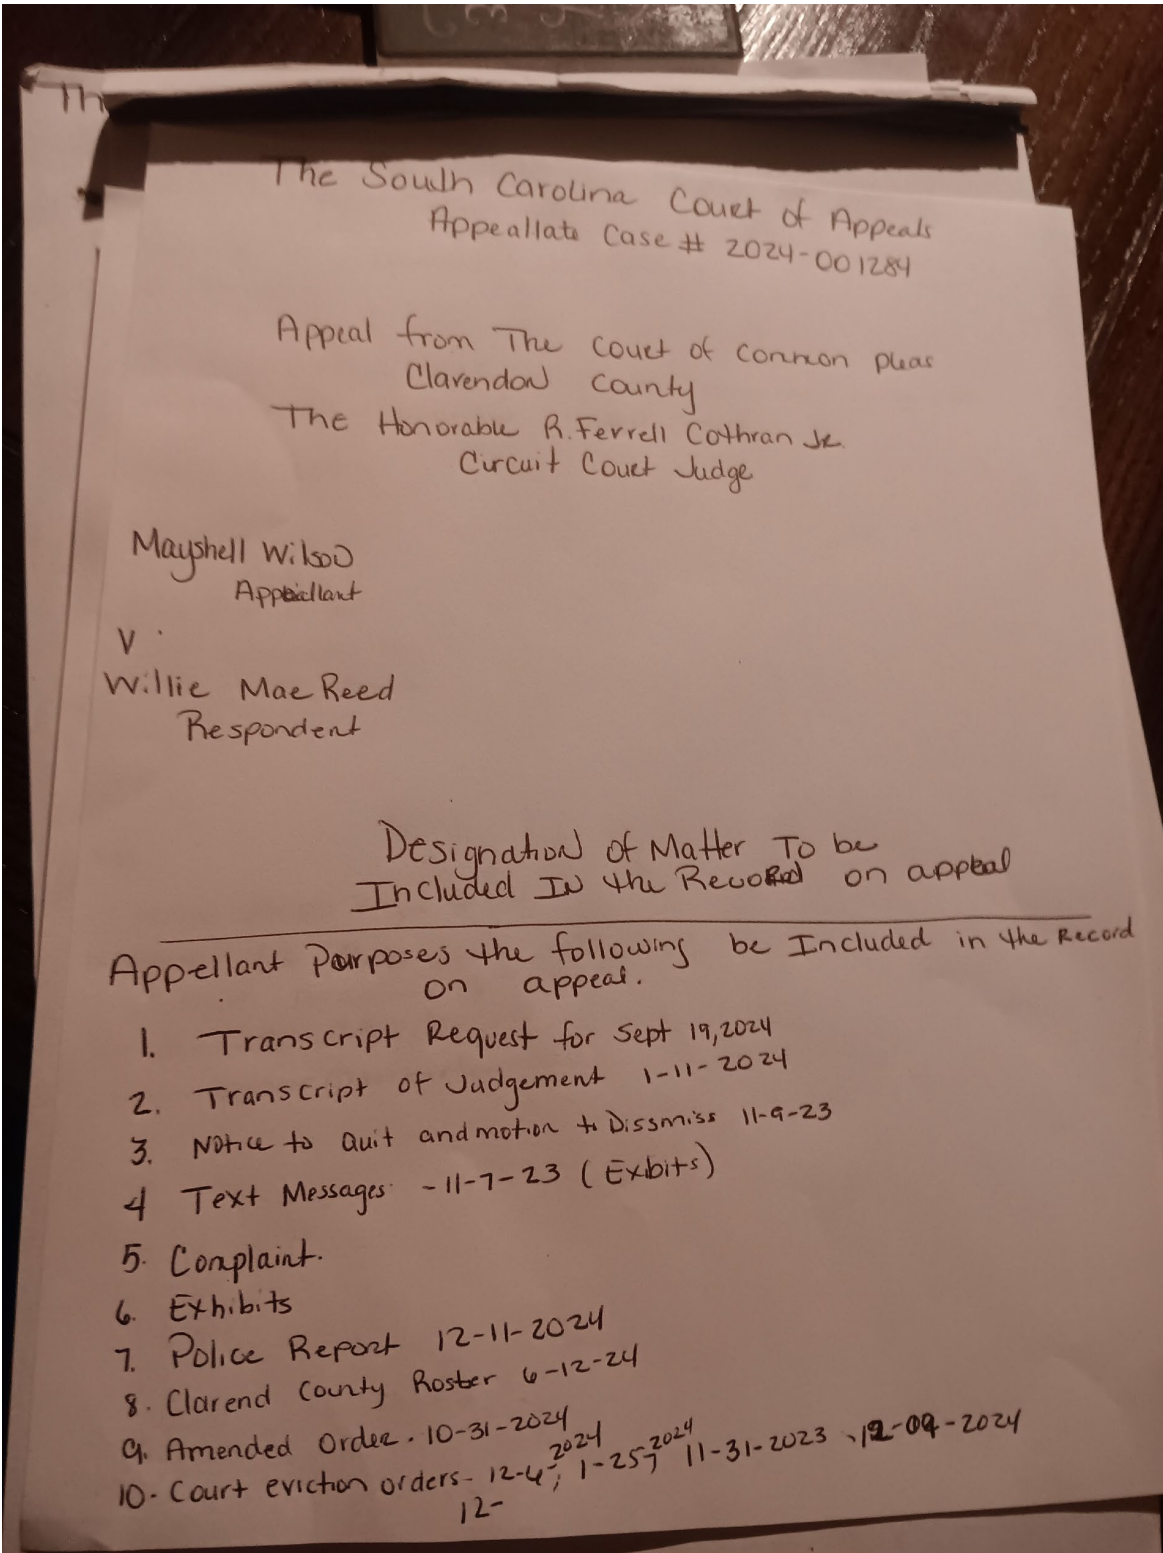 Th
The South Carolina Court of Appeals
Appeallate Case # 2024-001284
Appeal from The Court of Common pleas
Clarendon County
The Honorable R. Ferrell Cothran Jr.
Circuit Court Judge
Mayshell Wilson
Appellant
V
Willie Mae Reed
Respondent
Designation of Matter To be
Included In the Record on appeal
Appellant Purposes the following be Included in the Record
on appeal.
1. Transcript Request for Sept 19, 2024
2. Transcript of Judgement 1-11-2024
3. Notice to Quit and motion to Dissmiss 11-9-23
4 Text Messages - 11-7-23 (Exibits)
5. Complaint.
6. Exhibits
7. Police Report 12-11-2024
8. Clarend County Roster 6-12-24
9. Amended Order. 10-31-2024
10. Court eviction orders- 12-4-2024, 1-25-2024, 11-31-2023, 12-09-2024
12-